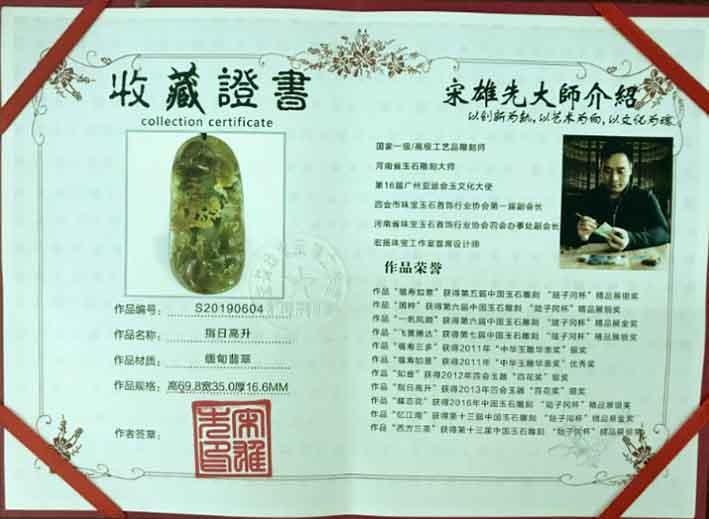 收藏證書
collection certificate
作品编号: S20190604
作品名称: 指日高升
作品材质: 缅甸翡翠
作品规格: 高69.8宽35.0厚16.6MM
作者签章:
宋雄先大師介紹
以创新为轨,以艺术为向,以文化为魂
国家一级/高级工艺品雕刻师
河南省玉石雕刻大师
第16届广州亚运会玉文化大使
四会市珠宝玉石首饰行业协会第一届副会长
河南省珠宝玉石首饰行业协会四会办事处副会长
宏振珠宝工作室首席设计师
作品荣誉
作品“福寿如意”获得第五届中国玉石雕刻 “陆子冈杯”精品展银奖
作品“国粹”获得第六届中国玉石雕刻 “陆子冈杯”精品展铜奖
作品“一帆风顺”获得第六届中国玉石雕刻 “陆子冈杯”精品展金奖
作品“飞黄腾达”获得第七届中国玉石雕刻 “陆子冈杯”精品展银奖
作品“福寿三多”获得2011年“中华玉雕华表奖”银奖
作品“福寿如意”获得2011年“中华玉雕华表奖”优秀奖
作品“如意”获得2012年四会玉器“百花奖”银奖
作品“指日高升”获得2013年四会玉器“百花奖”银奖
作品“蝶恋花”获得2016年中国玉石雕刻 “陆子冈杯”精品展银奖
作品“忆江南”获得第十三届中国玉石雕刻 “陆子冈杯”精品展金奖
作品“西方三圣”获得第十三届中国玉石雕刻 “陆子冈杯”精品展铜奖